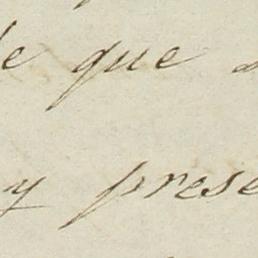 que
y prese